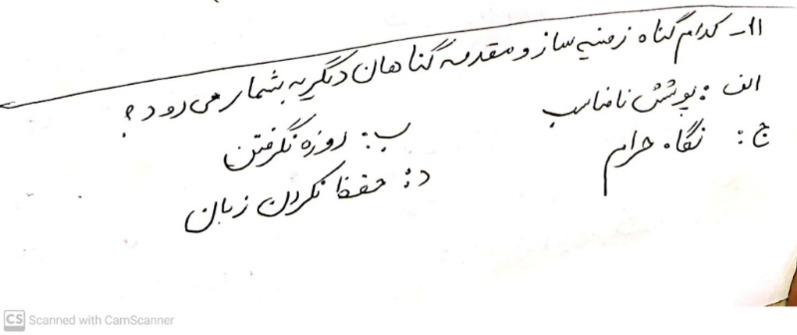 ۱۱- کدام گناه زمنیه ساز و مقدمه گناهان دیگر به شمار می رود؟
الف: پوشش نامناسب ب: روزه نگرفتن
ج: نگاه حرام د: حفظ نکردن زبان
CS Scanned with CamScanner